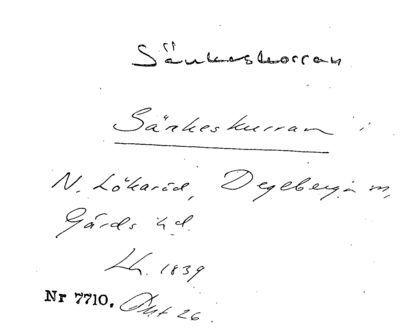 Sänkeskorran
Sänkeskurran i
N. Lökaröd, Degeberga sn,
Gärds hd.
Lh. 1839
Nr 7710. Akt 26.